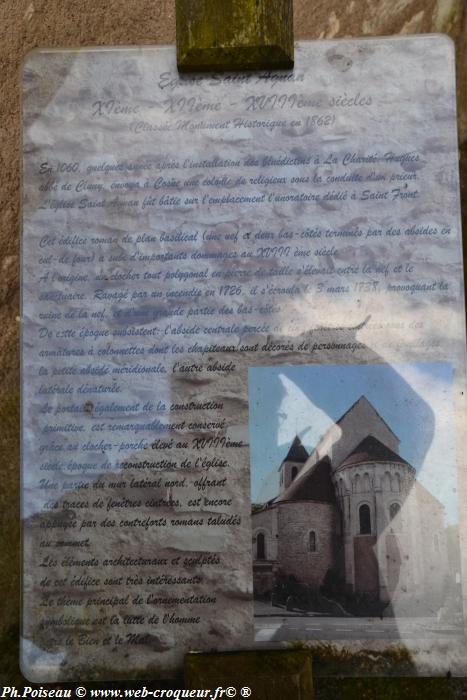 Eglise Saint Agnan
XIème - XIIème - XVIIIème siècles
(Classée Monument Historique en 1862)
En 1060, quelques année après l'installation des Bénédictins à La Charité, Hugues
abbé de Cluny, envoya à Cosne une colonie de religieux sous la conduite d'un prieur.
L'église Saint Agnan fût bâtie sur l'emplacement d'un oratoire dédié à Saint Front.
Cet édifice roman de plan basilical (une nef et deux bas-côtés terminés par des absides en
cul-de four) a subi d'importants dommages au XVIII ème siècle
A l'origine, un clocher tout polygonal en pierre de taille s'élevait entre la nef et le
sanctuaire. Ravagé par un incendie en 1726, il s'écroula le 3 mars 1738, provoquant la
ruine de la nef, et d'une grande partie des bas-côtés.
De cette époque subsistent: l'abside centrale percée de
armatures à colonnettes dont les chapiteaux sont décorés de personnages
la petite abside méridionale, l'autre abside
latérale dénaturée.
Le portail également de la construction
primitive, est remarquablement conservé
grâce au clocher-porche élevé au XVIIIème
siècle époque de reconstruction de l'église.
Une partie du mur latéral nord, offrant
des traces de fenêtres cintrées, est encore
appuyée par des contreforts romans taludés
au sommet.
Les éléments architecturaux et sculptés
de cet édifice sont très intéressants.
Le thème principal de l'ornementation
symbolique est la lutte de l'homme
entre le Bien et le Mal.
Ph.Poiseau ©-® www.web-croqueur.fr©-®